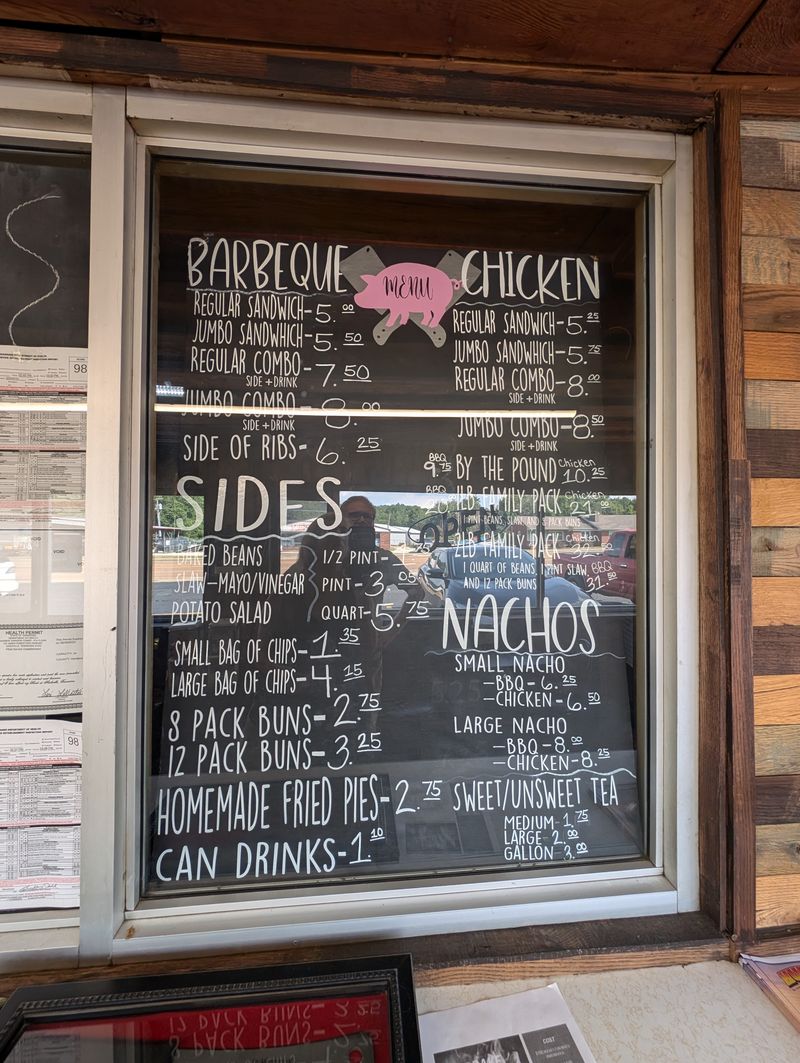 BARBEQUE
REGULAR SANDWICH-5.00
JUMBO SANDWHICH-5.50
REGULAR COMBO-7.50
SIDE+DRINK
JUMBO COMBO-8.00
SIDE+DRINK
SIDE OF RIBS-6.25
MENU
CHICKEN
REGULAR SANDWICH-5.25
JUMBO SANDWICH-5.75
REGULAR COMBO-8.00
SIDE+DRINK
JUMBO COMBO-8.50
SIDE+DRINK
BBQ 9.75 BY THE POUND Chicken 10.25
BBQ 1LB FAMILY PACK Chicken 21.
1 PINT BEANS, SLAW AND 8 PACK BUNS
2LB FAMILY PACK Chicken 32.
1 QUART OF BEANS, 1 PINT SLAW BBQ
AND 12 PACK BUNS 31.50
SIDES
BAKED BEANS 1/2 PINT-
SLAW-MAYO/VINEGAR PINT-3.05
POTATO SALAD QUART-5.75
SMALL BAG OF CHIPS-1.35
LARGE BAG OF CHIPS-4.15
8 PACK BUNS-2.75
12 PACK BUNS-3.25
HOMEMADE FRIED PIES-2.75
CAN DRINKS-1.10
NACHOS
SMALL NACHO
-BBQ-6.25
-CHICKEN-6.50
LARGE NACHO
-BBQ-8.00
-CHICKEN-8.25
SWEET/UNSWEET TEA
MEDIUM-1.75
LARGE-2.00
GALLON-3.00
98
VOID
VOID
HEALTH PERMIT
98
12 PACK BUNS-3.25
8 PACK BUNS-2.75
COST